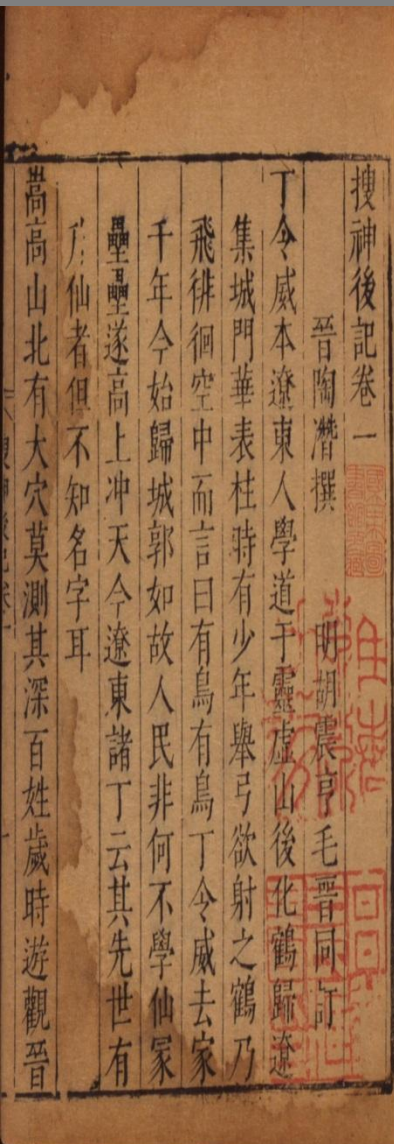 搜神後記卷一
晉陶潛撰　明胡震亨毛晉同訂
丁令威本遼東人學道于靈虛山後化鶴歸遼
集城門華表柱時有少年舉弓欲射之鶴乃
飛徘徊空中而言曰有鳥有鳥丁令威去家
千年今始歸城郭如故人民非何不學仙冢
壘壘遂高上冲天今遼東諸丁云其先世有
仙者但不知名字耳
嵩高山北有大穴莫測其深百姓歲時遊觀晉